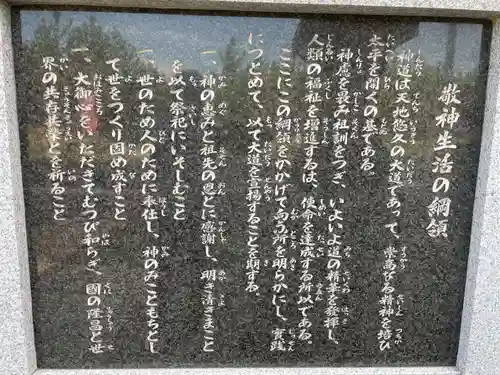 敬神生活の綱領
神道は天地悠久の大道であって、崇高なる精神を培ひ
太平を開くの基である。
神慮を畏み祖訓をつぎ、いよいよ道の精華を發揮し、
人類の福祉を増進するは、使命を達成する所以である。
ここにこの綱領をかかげて向う所を明らかにし、實践
につとめて、以て大道を宣揚することを期する。
一、神の恵みと祖先の恩とに感謝し、明き清きまこと
を以て祭祀にいそしむこと
一、世のため人のために奉仕し、神のみこともちとし
て世をつくり固め成すこと
一、大御心をいただきてむつび和らぎ、國の隆昌と世
界の共存共栄とを祈ること